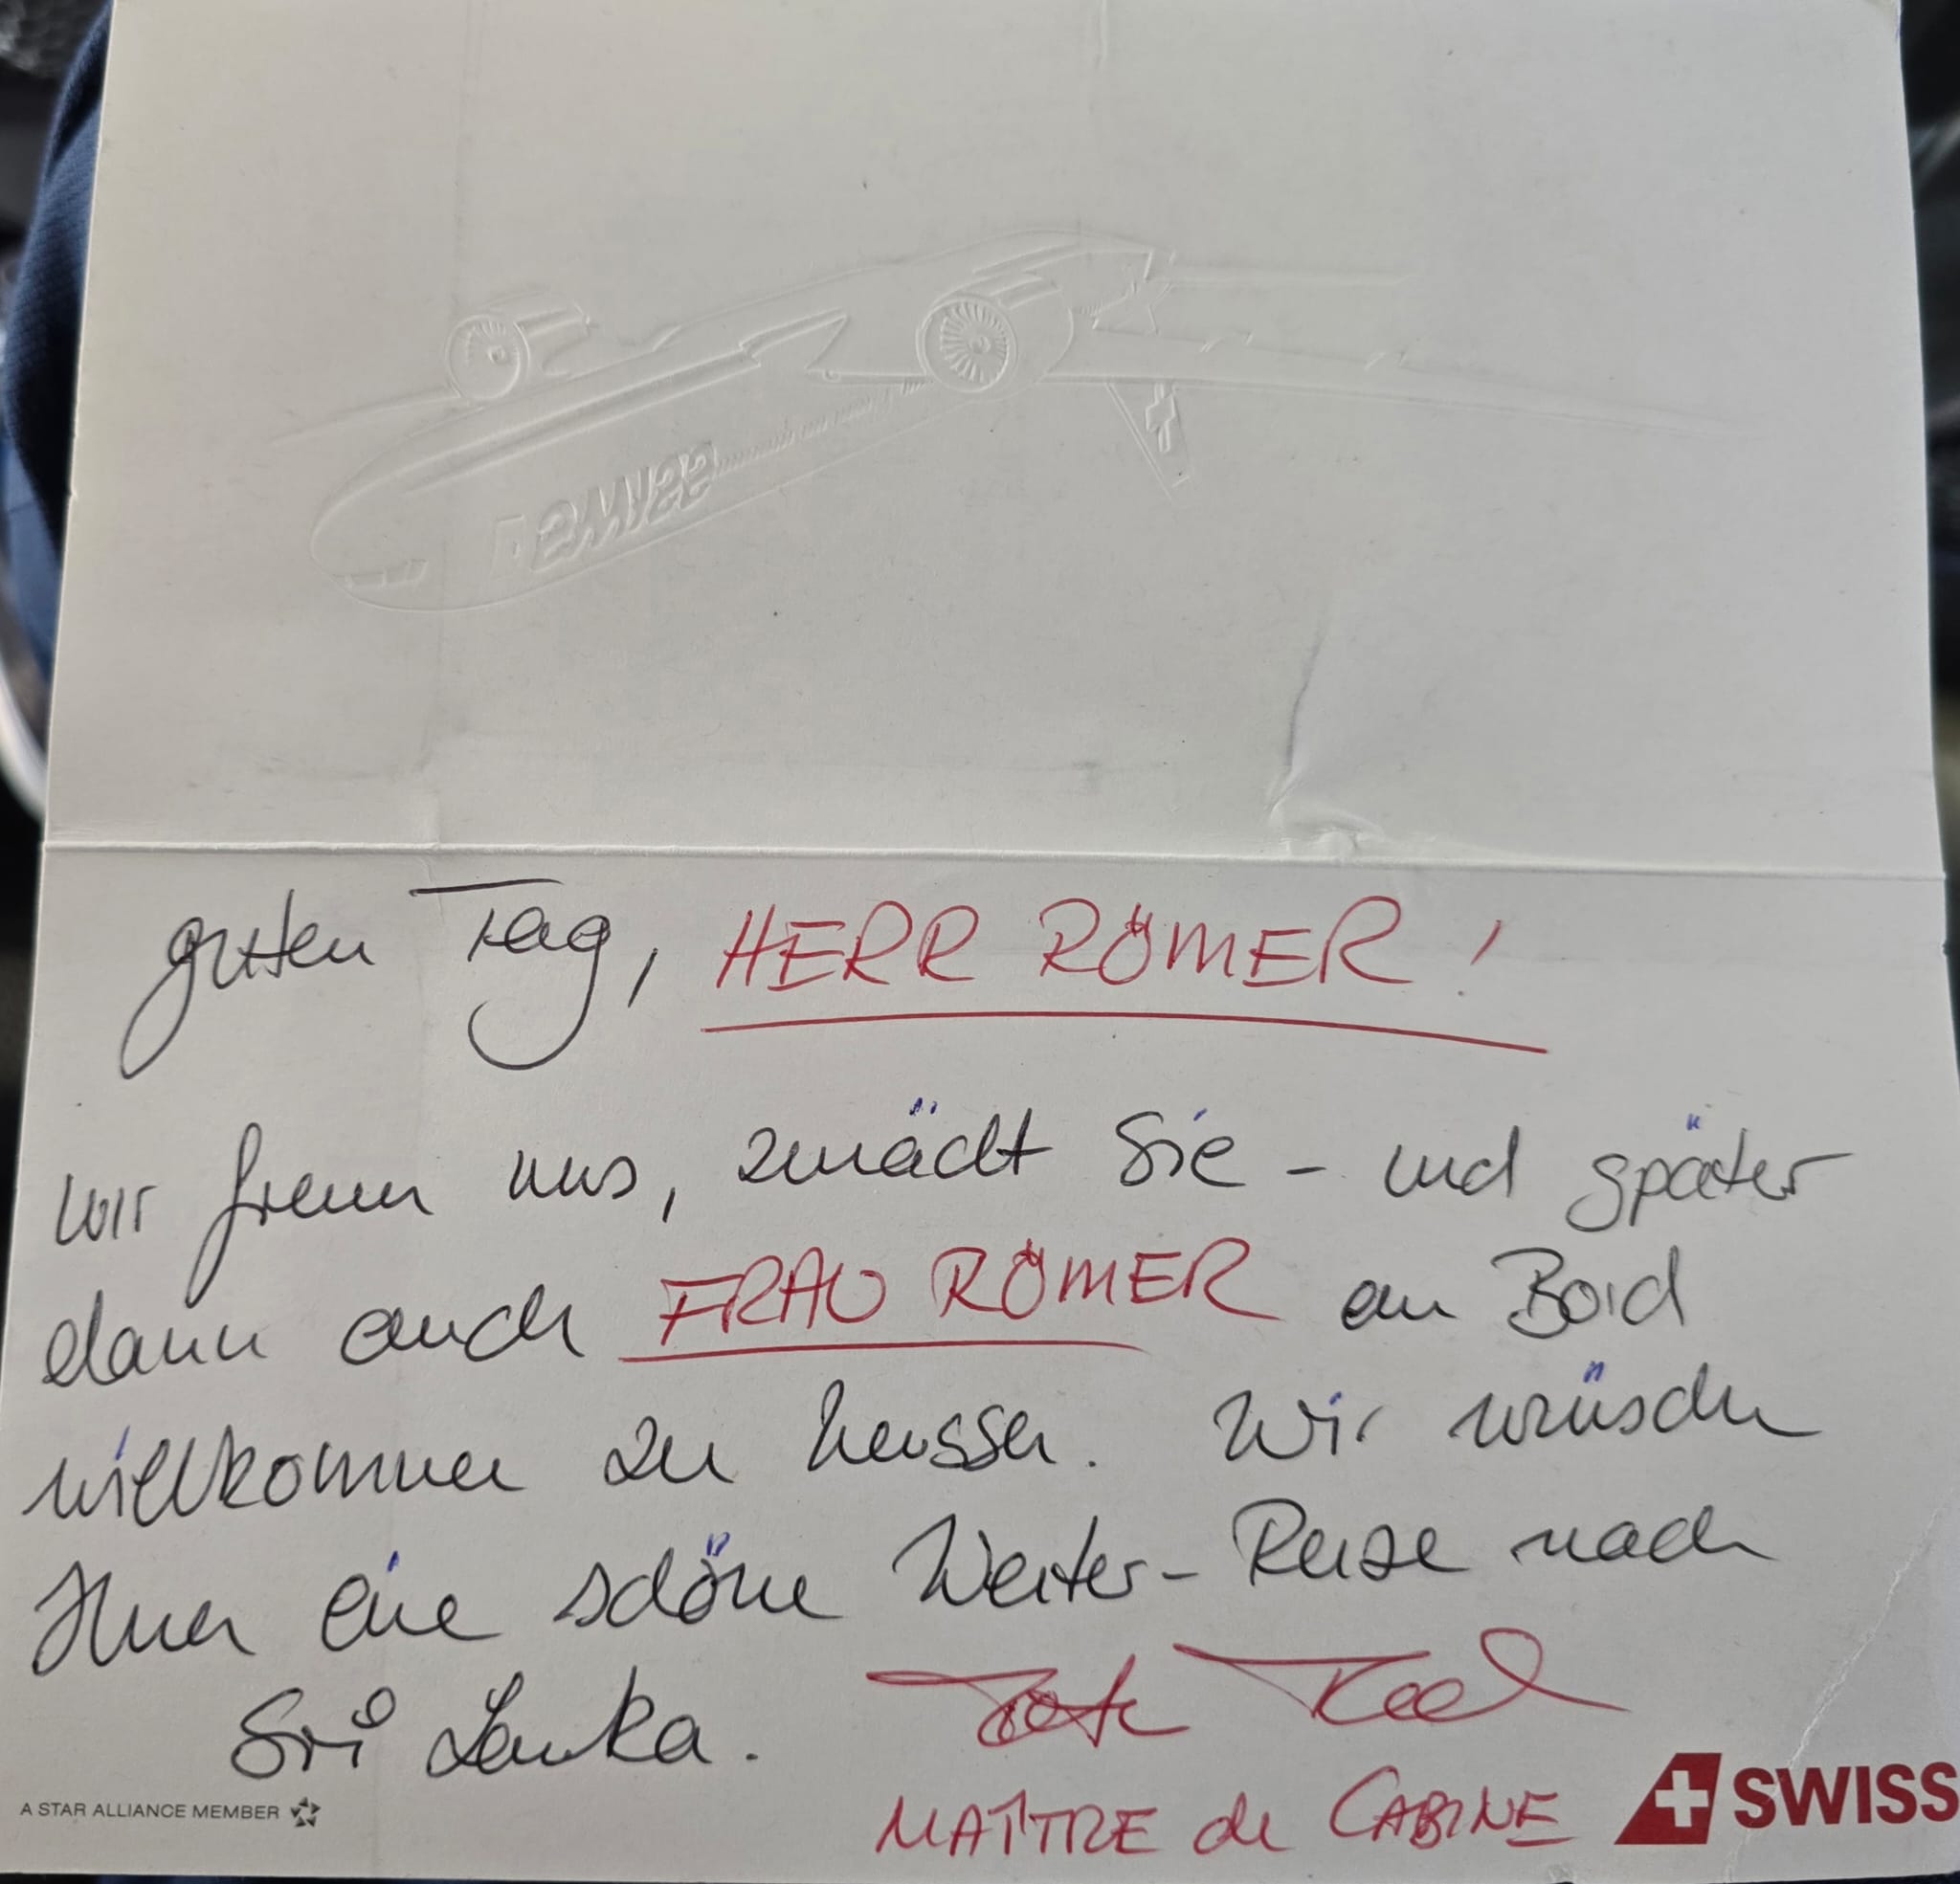 SWISS
guten Tag, HERR RÖMER!
Wir freuen uns, zunächst Sie - und später
dann auch FRAU RÖMER an Bord
willkommen zu heissen. Wir wünschen
Ihnen eine schöne Weiter-Reise nach
Sri Lanka.
MAÎTRE de CABINE
A STAR ALLIANCE MEMBER
SWISS